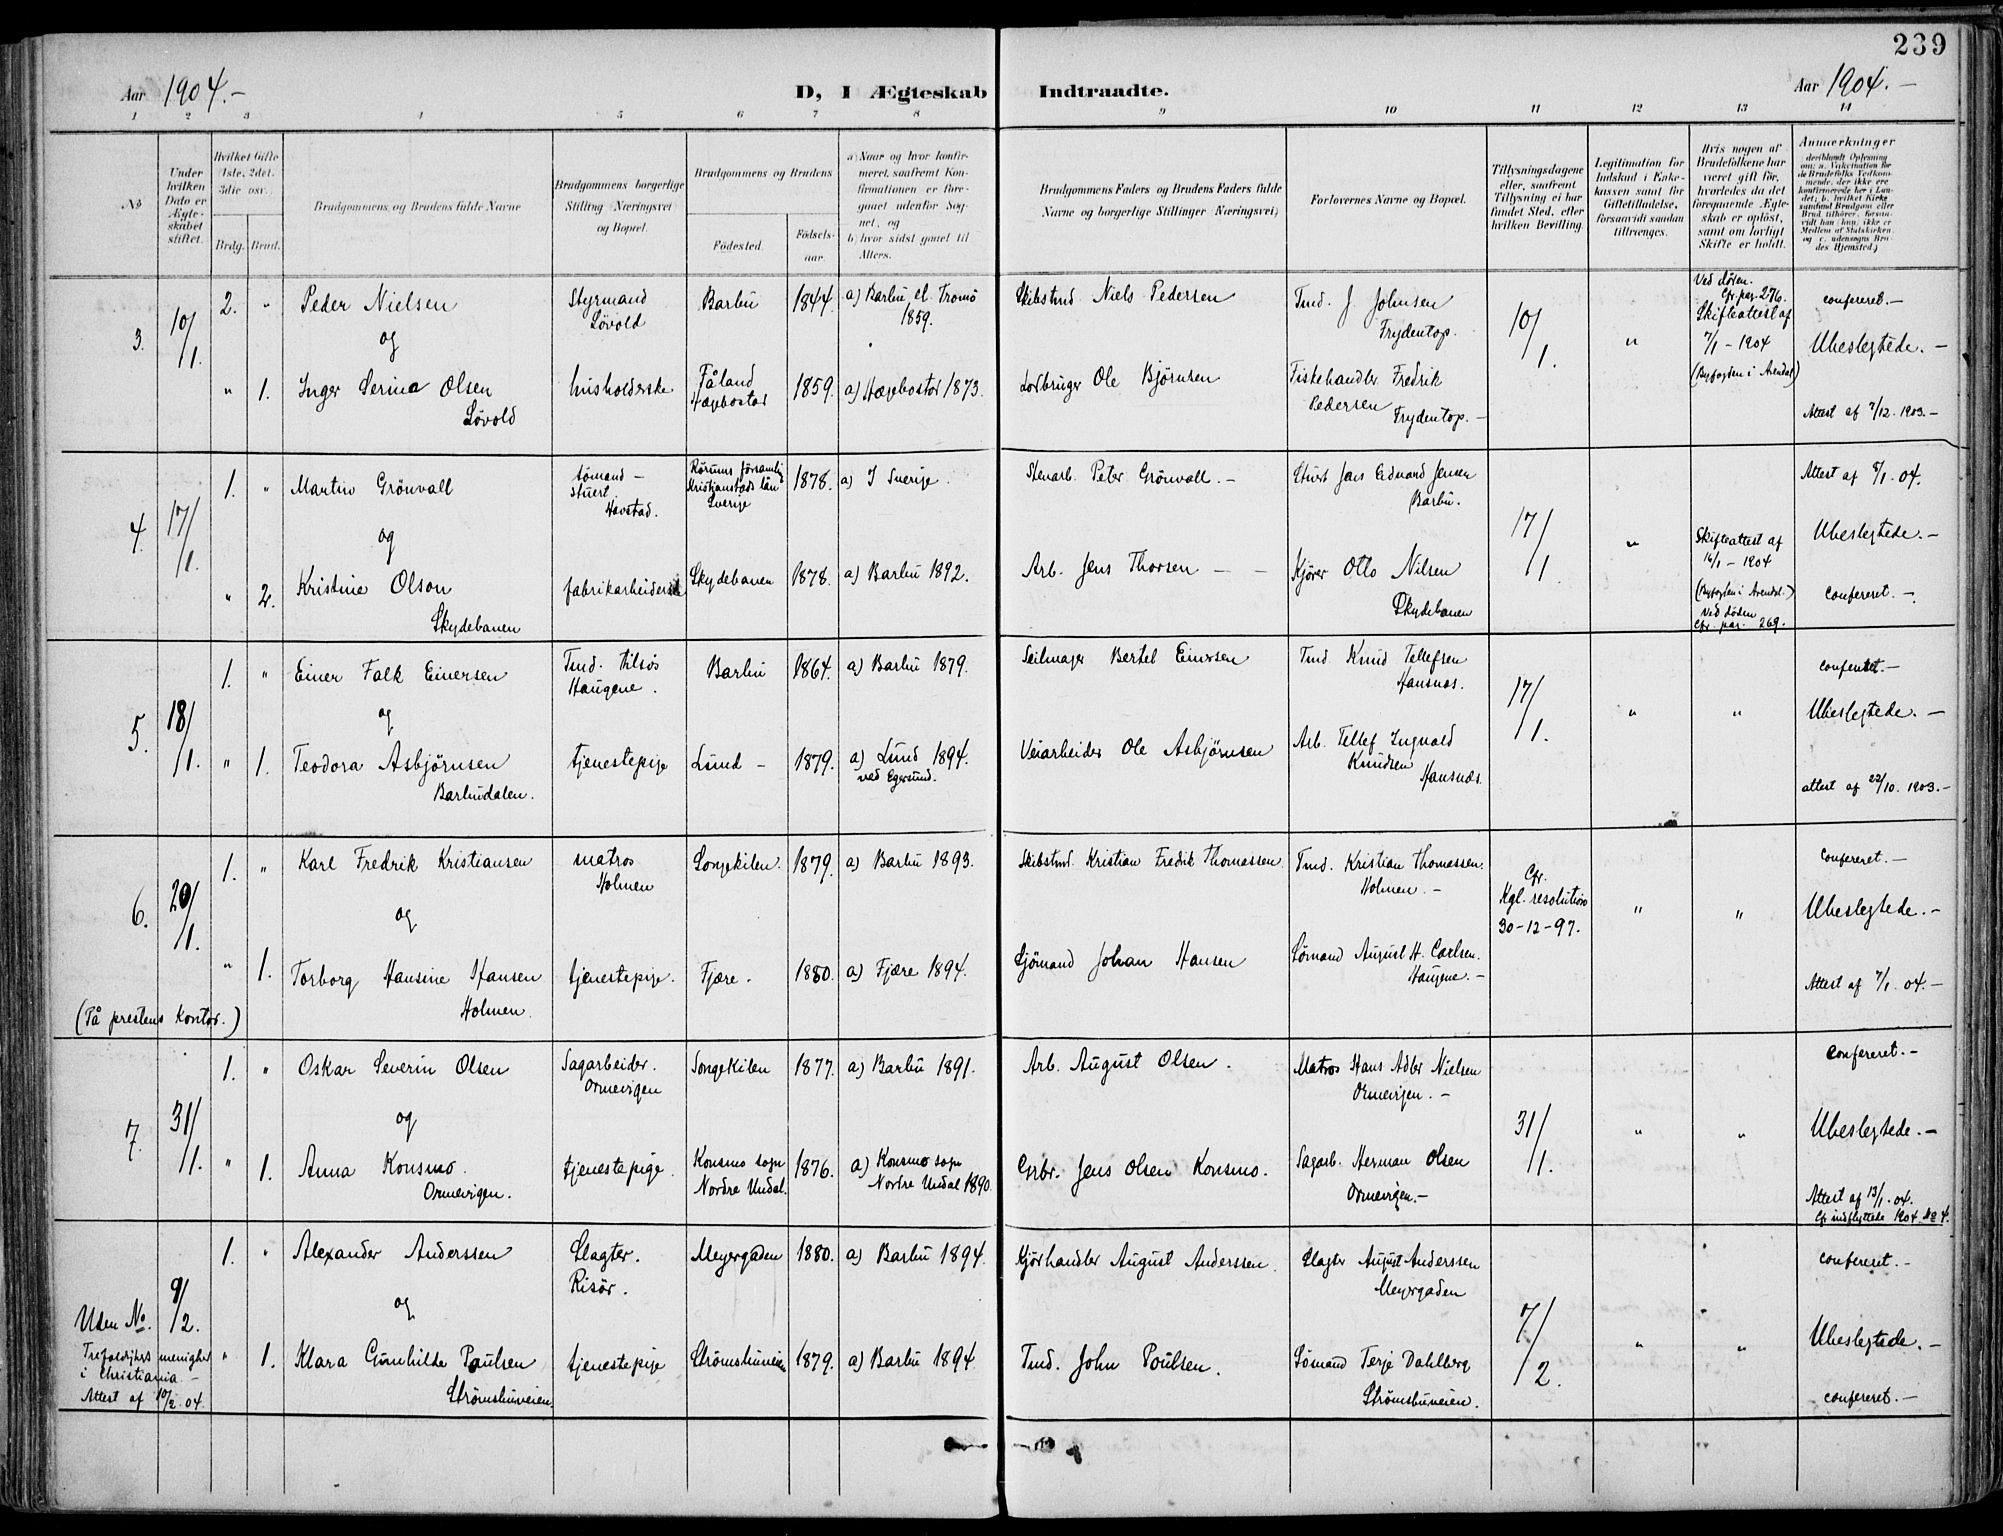 239
Aar 1904.-
D, I Ægteskab Indtraadte.
Aar 1904.-
1 2 3 4 5 6 7 8 9 10 11 12 13 14
No
Under hvilken Dato er Ægteskabet stiftet.
Hvilket Gifte 1ste, 2det, 3die osv.
Brdg. Brud.
Brudgommens og Brudens fulde Navne
Brudgommens borgerlige Stilling Næringsvei og Bopæl.
Brudgommens og Brudens
Fødested.
Fødsels-aar.
a) Naar og hvor konfirmeret, saafremt Konfirmationen er foregaaet udenfor Sognet, og
b) hvor sidst gaaet til Alters.
Brudgommens Faders og Brudens Faders fulde Navne og borgerlige Stillinger Næringsvei)
Forlovernes Navne og Bopæl.
Tillysningsdagene eller, saafremt Tillysning ei har fundet Sted, efter hvilken Bevilling.
Legitimation for Indskud i Enkekassen samt for Giftetilladelse, forsaavidt saadan tiltrænges.
Hvis nogen af Brudefolkene har været gift før, hvorledes da det foregaaende Ægteskab er opløst, samt om lovligt Skifte er holdt.
Anmerkninger
deriblandt Oplysning om: a. Vakcination for de Brudefolks Vedkommende, der ikke ere konfirmerede her i Landet; b. hvilket Kirkesamfund Brudgom eller Brud tilhører, forsaavidt han (hun) ikke er Medlem af Statskirken, og c. udensogns Brudes Hjemsted.)
3. 10/1. 2. " Peder Nielsen
Styrmand
Løvold
Barbu 1844. a) Barbu el. Tromö
1859.
Skibstmd Niels Pedersen
Tmd. J. Johnsen
Frydentop.
10/1. "
Ved døden.
Cfr. pag. 276.
Skifteattest af
7/1 - 1904
(Byfogden i Arendal)
confereret.-
Ubeslegtede.-
og
" 1. Inger Serina Olsen
Løvold
husholderske
Fåland
Hægebostad
1859. a) Hægebostad 1873.
Jordbruger Ole Bjørnsen
Fiskehandler Fredrik
Pedersen
Frydentop.-
Attest af 7/12. 1903.-
4. 17/1. 1. " Martin Grönvall
sømand -
stuert.
Havstad.
Rörums församling
Kristianstads län
Sverige
1878. a) I Sverige.
Stenarb. Peter Grönvall.-
Stuert Jens Edvard Jensen
Barbu.
17/1. "
Skifteattest af
16/1 - 1904
(Byfogden i Arendal.)
Ved døden
Cfr. pag. 269.
Attest af 8/1. 04.
Ubeslegtede.-
og
" 2. Kristine Olson
Skydebanen
fabrikarbeiderske
Skydebanen 1878. a) Barbu 1892.
Arb. Jens Thorsen - -
Kjører Otto Nilsen
Skydebanen
confereret.-
5. 18/1. 1. " Einer Falk Einersen
Tmd. tilsös
Haugene.
Barbu 1864. a) Barbu 1879.
Seilmager Bertel Einersen
Tmd Knud Tellefsen
Hansnæs.
17/1. " "
confereret.-
Ubeslegtede.-
og
" 1. Teodora Asbjörnsen
Barbudalen.
tjenestepige
Lund - 1879. a) Lund 1894.
ved Egersund.
Veiarbeider Ole Asbjörnsen
Arb. Tellef Ingvald
Knudsen
Hansnæs.
attest af 22/10. 1903.-
6. 20/1. 1. " Karl Fredrik Kristiansen
matros
Holmen
Songekilen. 1879. a) Barbu 1893.
Skibstmd. Kristian Fredik Thomassen
Tmd. Kristian Thomassen.
Holmen.-
Cfr.
Kgl. resolution
30-12-97.
" "
confereret.-
Ubeslegtede.-
og
" 1. Torborg Hansine Hansen
Holmen.
tjenestepige.
Fjære. 1880. a) Fjære 1894.
Sjömand Johan Hansen
Sømand August H. Carlsen.
Haugene.-
Attest af 7/1. 04.-
(På prestens kontor.)
7. 31/1. 1. " Oskar Severin Olsen
Sagarbeider.
Ormevigen
Songekilen 1877. a) Barbu 1891.
Arb. August Olsen.
Matros Hans Adler Nielsen
Ormevigen.-
31/1. " "
Confereret.-
Ubeslegtede.-
og
" 1. Anna Konsmo.
Ormevigen.
tjenestepige.
Konsmo sogn
Nordre Undal.
1876. a) Konsmo sogn
Nordre Undal 1890.
Grbr. Jens Olsen Konsmo.
Sagarb. Herman Olsen
Ormevigen.-
Attest af 13/1. 04.
Cfr indflyttede 1904 No 4.
Uden No.
9/2. 1. " Alexander Anderssen
Slagter.
Risör.
Meyergaden 1880. a) Barbu 1894.
Kjörhandler August Anderssen.
Slagter August Anderssen
Meyergaden
7/2. " "
confereret.-
Ubeslegtede.-
og
" 1. Klara Gunhilde Paulsen
Strømsbuveien.
tjenestepige
Strømsbuveien 1879. a) Barbu 1894
Tmd. John Poulsen.
Sømand Terje Dahlberg
Strømsbuveien.
confereret.-
Trefoldighets menighet
i Christiania.-
Attest af 10/2. 04.